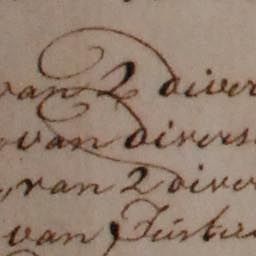 van 2 diver
van divers
van 2 diver
van